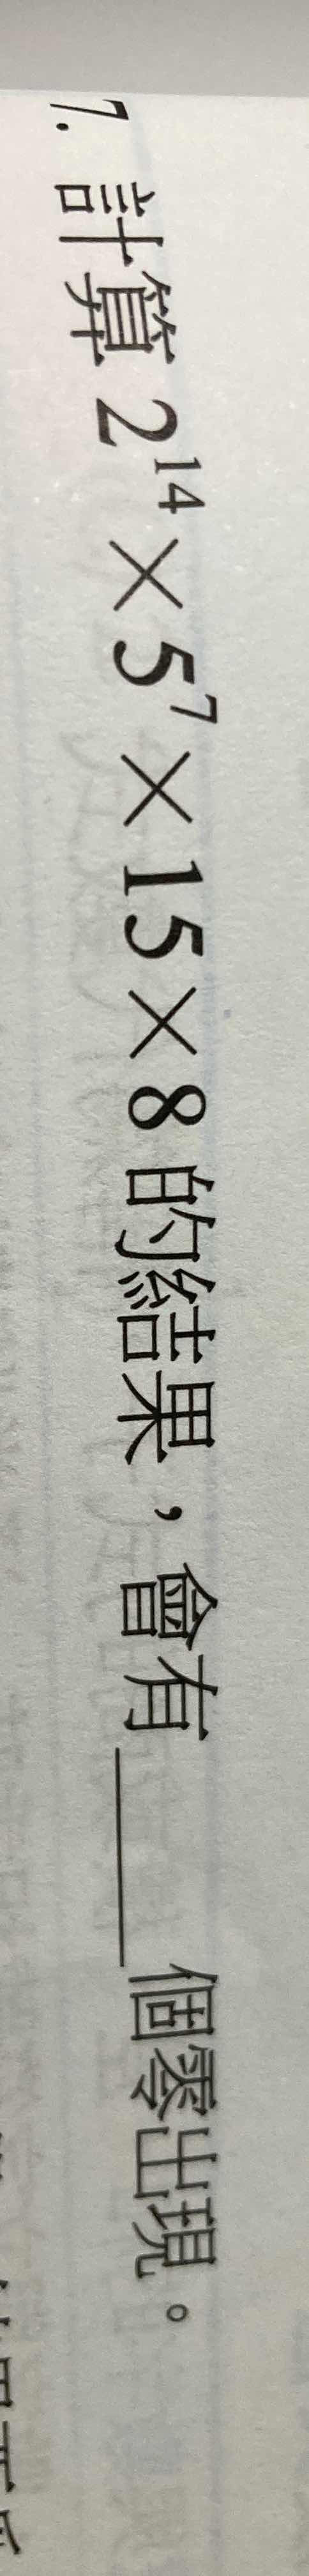 7. 計算 2¹⁴×5⁷×15×8 的結果，會有＿＿＿個零出現。